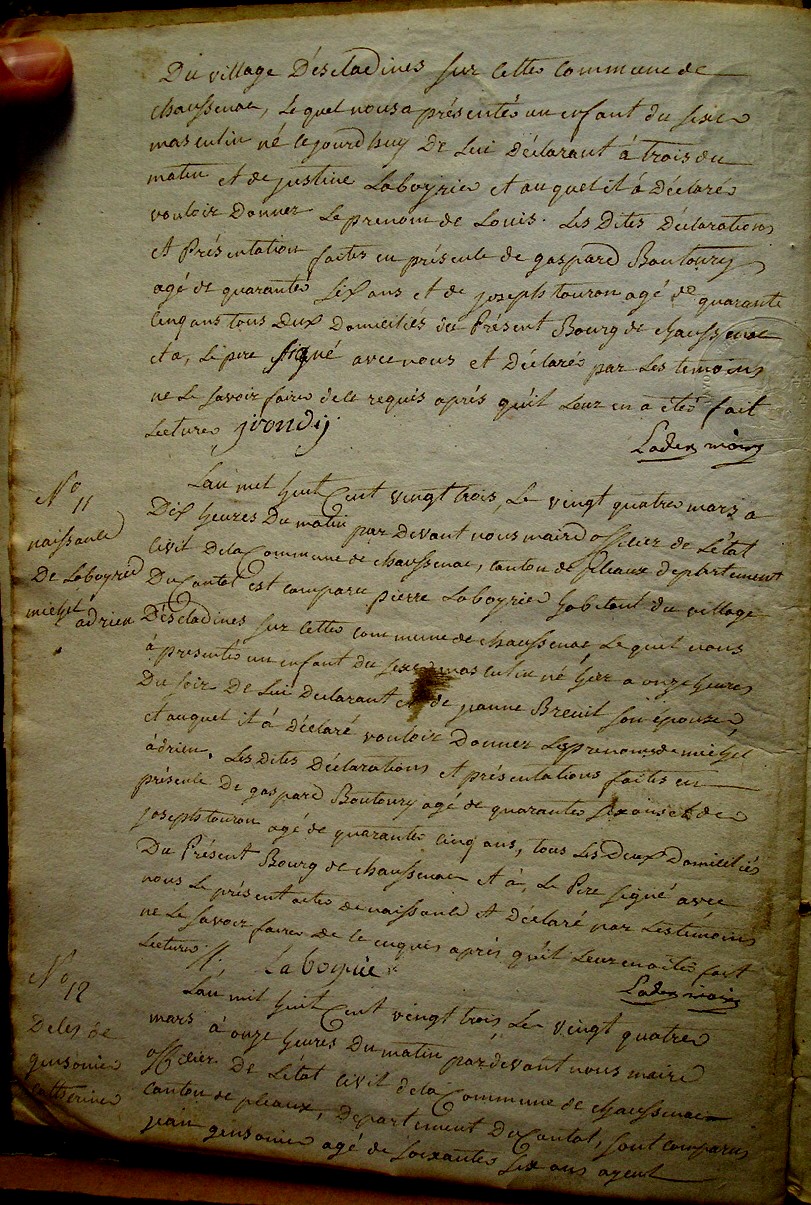 Du village D'éscladines sur cette commune de
chaussenac, Le quel nous a présenté un enfant du sexe
masculin né cejourdhuy De Lui Déclarant à trois du
matin et de justine Laboyrie et au quel il à Déclaré
vouloir Donner Le prenom de Louis. Les Dites Déclarations
et Présentation faites en présence de gaspard Boutoury
agé de quarante six ans et de joseph touron agé de quarante
cinq ans tous Deux Domiciliés du Présent Bourg de chaussenac
et a, Le pere signé avec nous et Déclaré par Les temoins
ne Le savoir faire de ce requis aprés qu'il Leur en a été fait
Lecture jrondij
Lader maire
No 11
naissance
De Laboyrie
michel adrien
L'an mil huit Cent vingt trois, Le vingt quatre mars a
Dix heures Du matin par Devant nous maire officier de L'état
civil De la Commune de chaussenac, canton de pleaux departement
Du Cantal est comparu pierre Laboyrie habitant du village
D'éscladines sur cette commune de chaussenac Le quel nous
à presenté un enfant du sexe masculin né hier a onze heures
Du soir De Lui Declarant et de jeanne Breuil son épouse,
et auquel il à Déclaré vouloir Donner Les prenoms de michel
àdrien. Les Dites Déclarations et présentations faites en
présence De gaspard Boutoury agé de quarante six ans et de
joseph touron agé de quarante cinq ans, tous Les Deux Domiciliés
Du Présent Bourg de chaussenac et à, Le Pere signé avec
nous Le présent acte de naissance et Déclaré par Les témoins
ne Le savoir faire De ce requis aprés qu'il Leur en a été fait
Lecture ://. Laboyrie
Lader maire
No 12
Deces de
gensonie
Catherine
L'an mil huit Cent vingt trois Le vingt quatre
mars à onze heures Du matin par devant nous maire
officier De L'état civil de la Commune de chaussenac
canton de pleaux, Departement Du Cantal, sont comparus
jean gensonie agé de soixante six ans ayent